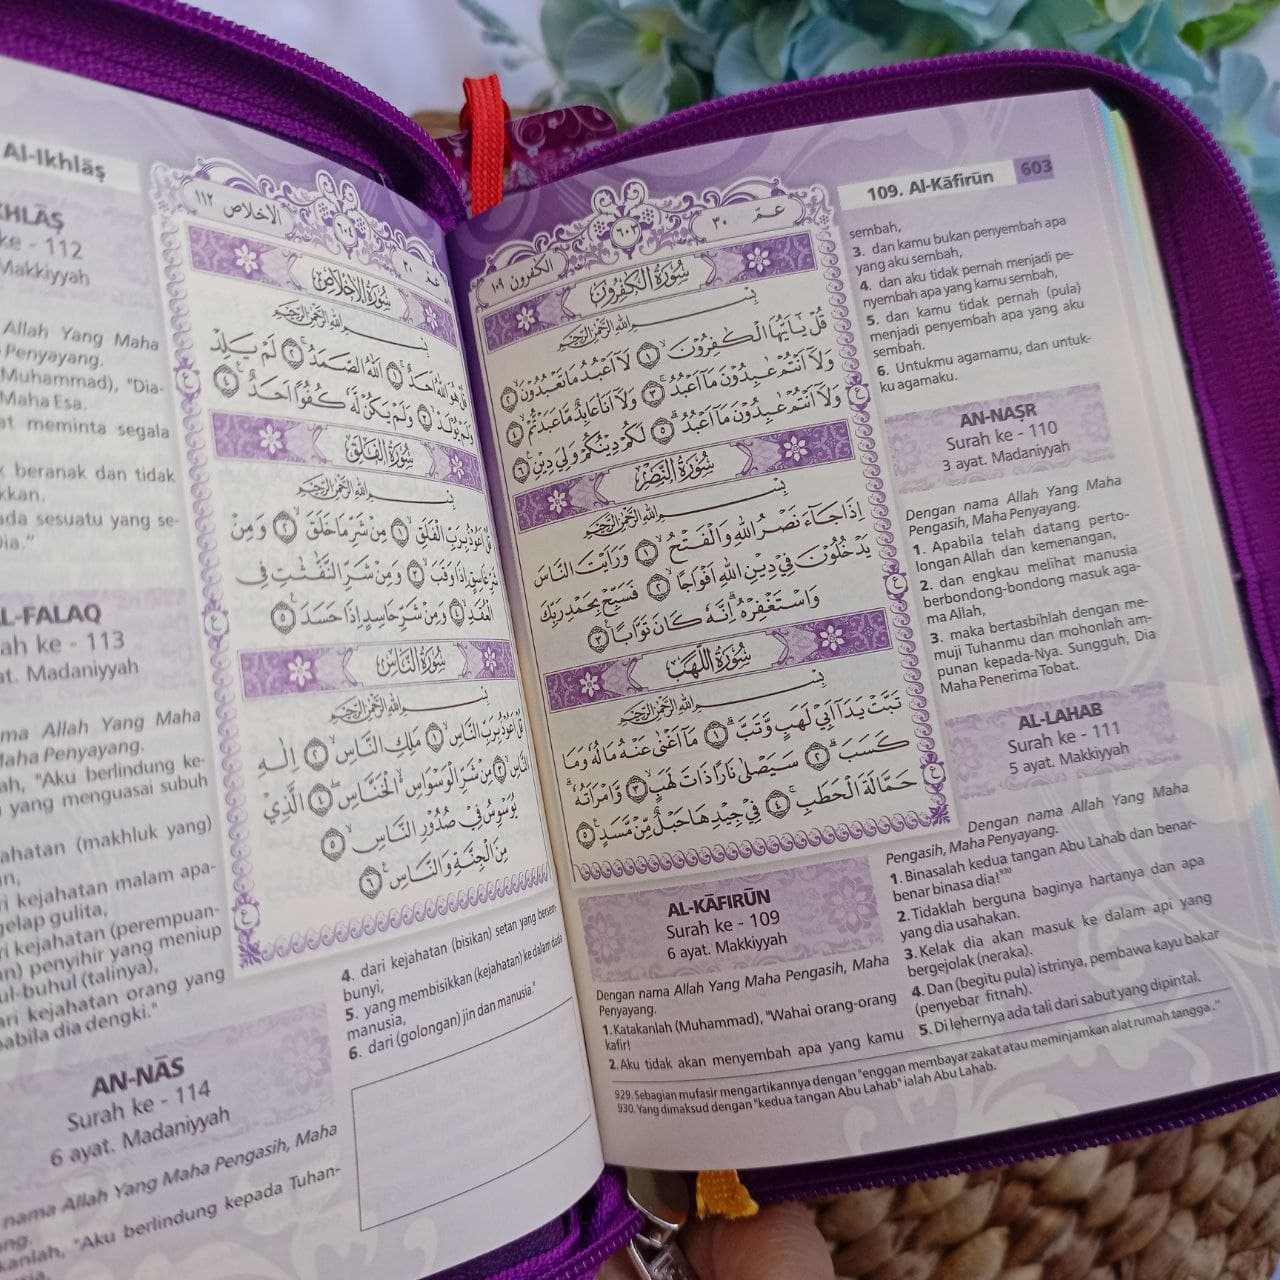 109. Al-Kāfirūn 603
الكفرون ١٠٩
٦٠٣
عمّ ٣٠
سُوْرَةُ الْكٰفِرُوْنَ
بِسْمِ اللّٰهِ الرَّحْمٰنِ الرَّحِيْمِ
قُلْ يٰٓاَيُّهَا الْكٰفِرُوْنَۙ ١ لَآ اَعْبُدُ مَا تَعْبُدُوْنَۙ ٢
وَلَآ اَنْتُمْ عٰبِدُوْنَ مَآ اَعْبُدُۚ ٣ وَلَآ اَنَا۠ عَابِدٌ مَّا عَبَدْتُّمْۙ ٤
وَلَآ اَنْتُمْ عٰبِدُوْنَ مَآ اَعْبُدُۗ ٥ لَكُمْ دِيْنُكُمْ وَلِيَ دِيْنِ ࣖ ٦
سُوْرَةُ النَّصْرِ
بِسْمِ اللّٰهِ الرَّحْمٰنِ الرَّحِيْمِ
اِذَا جَاۤءَ نَصْرُ اللّٰهِ وَالْفَتْحُۙ ١ وَرَاَيْتَ النَّاسَ
يَدْخُلُوْنَ فِيْ دِيْنِ اللّٰهِ اَفْوَاجًاۙ ٢ فَسَبِّحْ بِحَمْدِ رَبِّكَ
وَاسْتَغْفِرْهُۗ اِنَّهٗ كَانَ تَوَّابًا ࣖ ٣
سُوْرَةُ اللَّهَبِ
بِسْمِ اللّٰهِ الرَّحْمٰنِ الرَّحِيْمِ
تَبَّتْ يَدَآ اَبِيْ لَهَبٍ وَّتَبَّۗ ١ مَآ اَغْنٰى عَنْهُ مَالُهٗ وَمَا
كَسَبَۗ ٢ سَيَصْلٰى نَارًا ذَاتَ لَهَبٍۙ ٣ وَّامْرَاَتُهٗۗ
حَمَّالَةَ الْحَطَبِۚ ٤ فِيْ جِيْدِهَا حَبْلٌ مِّنْ مَّسَدٍ ࣖ ٥
AL-KĀFIRŪN
Surah ke - 109
6 ayat. Makkiyyah
Dengan nama Allah Yang Maha Pengasih, Maha
Penyayang.
1. Katakanlah (Muhammad), "Wahai orang-orang
kafir!
2. Aku tidak akan menyembah apa yang kamu
sembah,
3. dan kamu bukan penyembah apa
yang aku sembah,
4. dan aku tidak pernah menjadi pe-
nyembah apa yang kamu sembah,
5. dan kamu tidak pernah (pula)
menjadi penyembah apa yang aku
sembah.
6. Untukmu agamamu, dan untuk-
ku agamaku.
AN-NAṢR
Surah ke - 110
3 ayat. Madaniyyah
Dengan nama Allah Yang Maha
Pengasih, Maha Penyayang.
1. Apabila telah datang perto-
longan Allah dan kemenangan,
2. dan engkau melihat manusia
berbondong-bondong masuk aga-
ma Allah,
3. maka bertasbihlah dengan me-
muji Tuhanmu dan mohonlah am-
punan kepada-Nya. Sungguh, Dia
Maha Penerima Tobat.
AL-LAHAB
Surah ke - 111
5 ayat. Makkiyyah
Dengan nama Allah Yang Maha
Pengasih, Maha Penyayang.
1. Binasalah kedua tangan Abu Lahab dan benar-
benar binasa dia!930
2. Tidaklah berguna baginya hartanya dan apa
yang dia usahakan.
3. Kelak dia akan masuk ke dalam api yang
bergejolak (neraka).
4. Dan (begitu pula) istrinya, pembawa kayu bakar
(penyebar fitnah).
5. Di lehernya ada tali dari sabut yang dipintal.
929. Sebagian mufasir mengartikannya dengan "enggan membayar zakat atau meminjamkan alat rumah tangga.."
930. Yang dimaksud dengan "kedua tangan Abu Lahab" ialah Abu Lahab.
Al-Ikhlāṣ
الاخلاص ١١٢
٦٠٤
عمّ ٣٠
سُوْرَةُ الْاِخْلَاصِ
بِسْمِ اللّٰهِ الرَّحْمٰنِ الرَّحِيْمِ
قُلْ هُوَ اللّٰهُ اَحَدٌۚ ١ اَللّٰهُ الصَّمَدُۚ ٢ لَمْ يَلِدْ
وَلَمْ يُوْلَدْۙ ٣ وَلَمْ يَكُنْ لَّهٗ كُفُوًا اَحَدٌ ࣖ ٤
سُوْرَةُ الْفَلَقِ
بِسْمِ اللّٰهِ الرَّحْمٰنِ الرَّحِيْمِ
قُلْ اَعُوْذُ بِرَبِّ الْفَلَقِۙ ١ مِنْ شَرِّ مَا خَلَقَۙ ٢ وَمِنْ
شَرِّ غَاسِقٍ اِذَا وَقَبَۙ ٣ وَمِنْ شَرِّ النَّفّٰثٰتِ فِى
الْعُقَدِۙ ٤ وَمِنْ شَرِّ حَاسِدٍ اِذَا حَسَدَ ࣖ ٥
سُوْرَةُ النَّاسِ
بِسْمِ اللّٰهِ الرَّحْمٰنِ الرَّحِيْمِ
قُلْ اَعُوْذُ بِرَبِّ النَّاسِۙ ١ مَلِكِ النَّاسِۙ ٢ اِلٰهِ
النَّاسِۙ ٣ مِنْ شَرِّ الْوَسْوَاسِ ەۙ الْخَنَّاسِۖ ٤ الَّذِيْ
يُوَسْوِسُ فِيْ صُدُوْرِ النَّاسِۙ ٥
مِنَ الْجِنَّةِ وَالنَّاسِ ࣖ ٦
KHLĀṢ
ke - 112
Makkiyyah
Allah Yang Maha
Penyayang.
Muhammad), "Dia-
Maha Esa.
at meminta segala
k beranak dan tidak
kkan.
ada sesuatu yang se-
Dia."
L-FALAQ
ah ke - 113
at. Madaniyyah
ma Allah Yang Maha
Maha Penyayang.
ah, "Aku berlindung ke-
yang menguasai subuh
jahatan (makhluk yang)
an,
ri kejahatan malam apa-
gelap gulita,
ri kejahatan (perempuan-
an) penyihir yang meniup
ul-buhul (talinya),
ari kejahatan orang yang
pabila dia dengki."
AN-NĀS
Surah ke - 114
6 ayat. Madaniyyah
nama Allah Yang Maha Pengasih, Maha
ang.
kanlah, "Aku berlindung kepada Tuhan-
sia,
4. dari kejahatan (bisikan) setan yang bersem-
bunyi,
5. yang membisikkan (kejahatan) ke dalam dada
manusia,
6. dari (golongan) jin dan manusia."